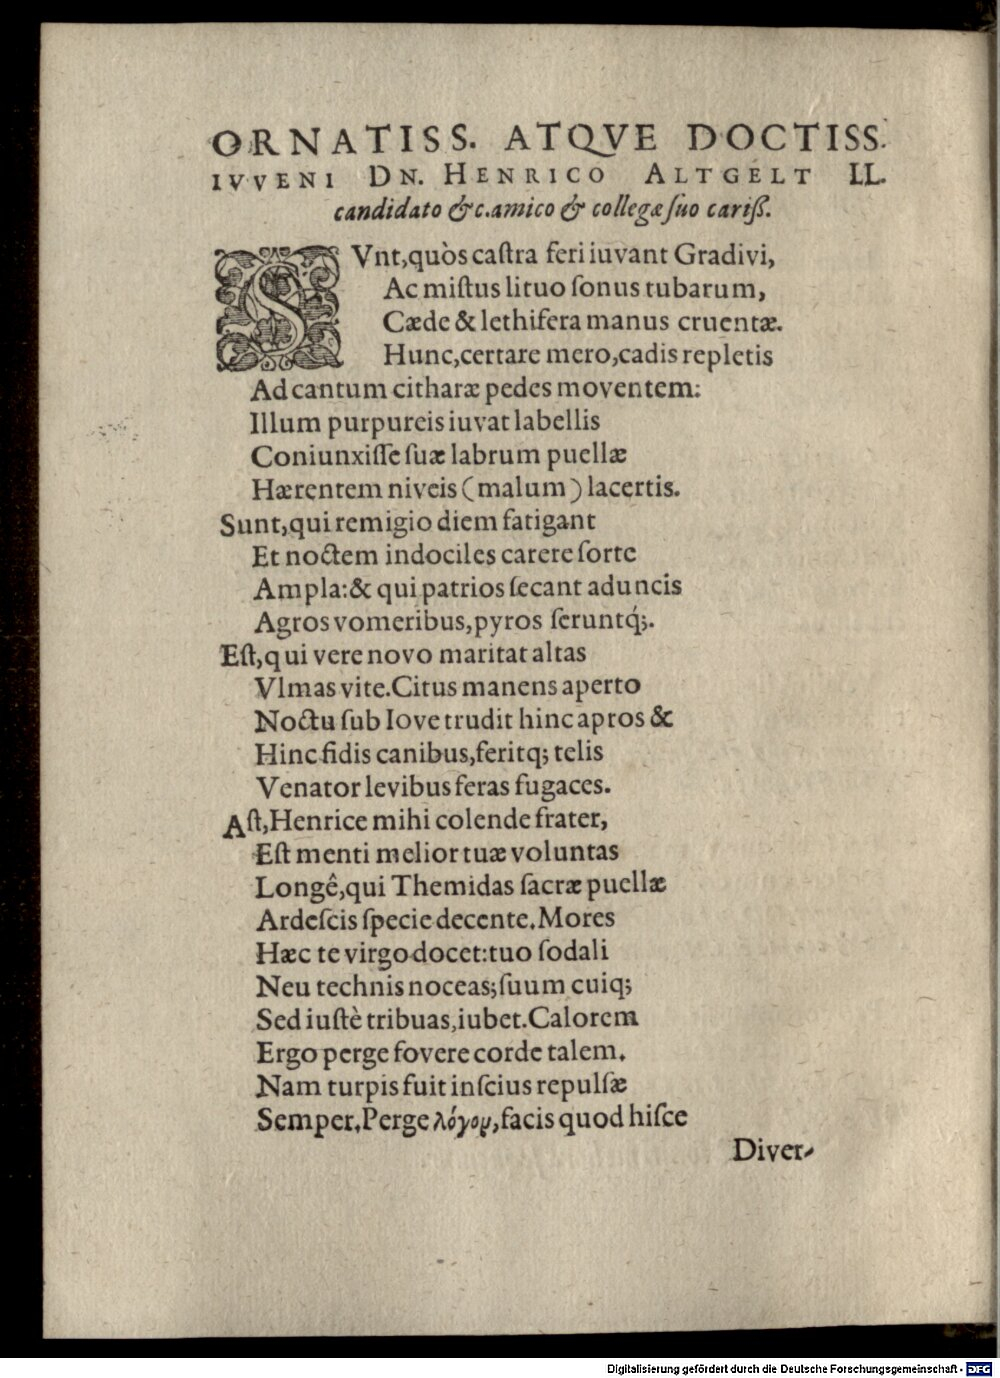 ORNATISS. ATQVE DOCTISS.
IVVENI DN. HENRICO ALTGELT LL.
candidato &c. amico & collegæ ſuo cariß.
SVnt, quòs caſtra feri iuvant Gradivi,
Ac miſtus lituo ſonus tubarum,
Cæde & lethifera manus cruentæ.
Hunc, certare mero, cadis repletis
Ad cantum citharæ pedes moventem:
Illum purpureis iuvat labellis
Coniunxiſſe ſuæ labrum puellæ
Hærentem niveis (malum) lacertis.
Sunt, qui remigio diem fatigant
Et noctem indociles carere ſorte
Ampla: & qui patrios ſecant aduncis
Agros vomeribus, pyros ſeruntq́;.
Eſt, qui vere novo maritat altas
Vlmas vite. Citus manens aperto
Noctu ſub Iove trudit hinc apros &
Hinc fidis canibus, feritq; telis
Venator levibus feras fugaces.
Aſt, Henrice mihi colende frater,
Eſt menti melior tuæ voluntas
Longê, qui Themidas ſacræ puellæ
Ardeſcis ſpecie decente. Mores
Hæc te virgo docet: tuo ſodali
Neu technis noceas; ſuum cuiq;
Sed iuſtè tribuas, iubet. Calorem
Ergo perge fovere corde talem.
Nam turpis fuit inſcius repulſæ
Semper. Perge λόγου, facis quod hiſce
Diver-
Digitalisierung gefördert durch die Deutsche Forschungsgemeinschaft - DFG